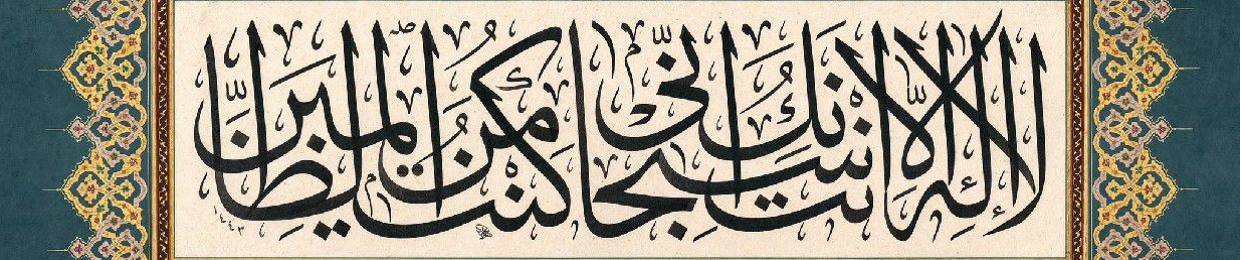 لا إله إلا أنت سبحانك إني كنت من الظالمين
١٤٤٣